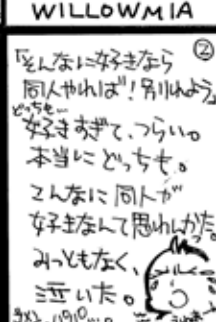 WILLOWMIA
②
「そんなに好きなら
同人やれば!別れよう」
どっちも…
好きすぎて、つらい。
本当にどっちも。
こんなに同人が
好きなんて思わんかった。
みっともなく、
泣いた。